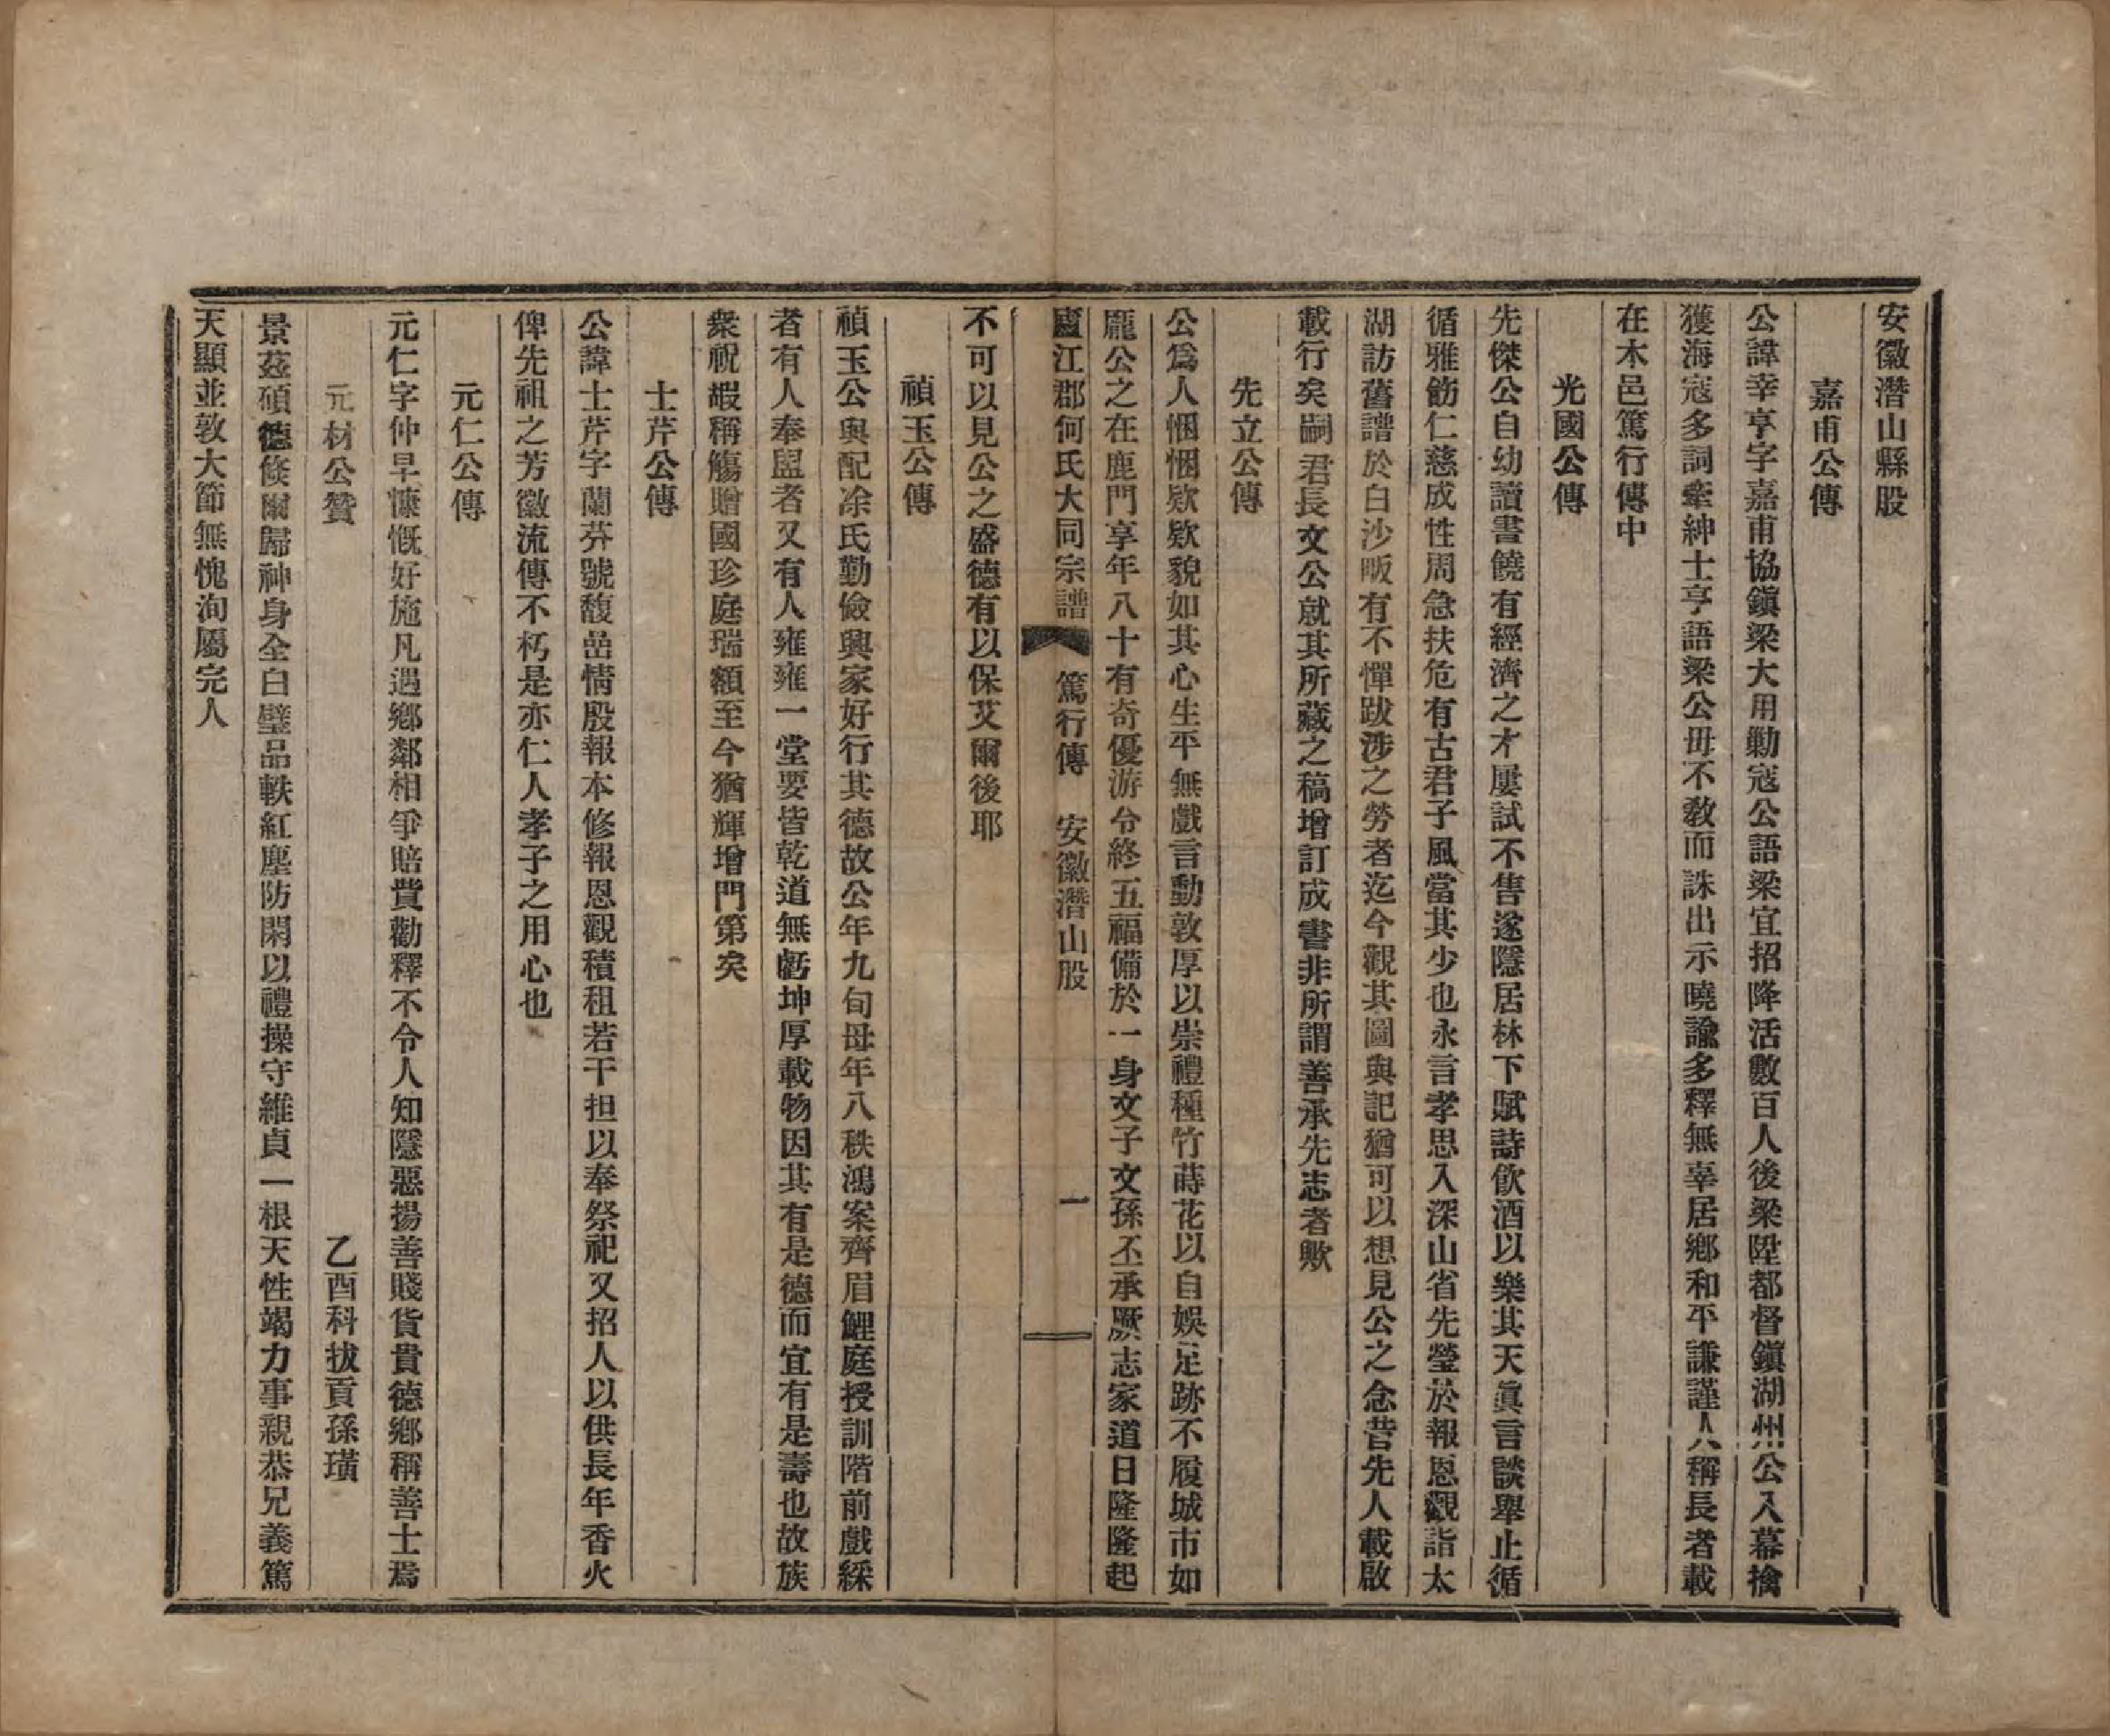 安徽潛山縣股
嘉甫公傳
公諱幸亨字嘉甫協鎭梁大用勦寇公語梁宜招降活數百人後梁陞都督鎭湖州公入幕擒
獲海寇多詞牽紳士亨語梁公毋不敎而誅出示曉諭多釋無辜居鄕和平謙謹人稱長者載
在本邑篤行傳中
光國公傳
先傑公自幼讀書饒有經濟之才屢試不售遂隱居林下賦詩飮酒以樂其天眞言談舉止循
循雅飭仁慈成性周急扶危有古君子風當其少也永言孝思入深山省先瑩於報恩觀詣太
湖訪舊譜於白沙畈有不憚跋涉之勞者迄今觀其圖與記猶可以想見公之念昔先人載啟
載行矣嗣君長文公就其所藏之稿增訂成書非所謂善承先志者歟
先立公傳
公爲人悃悃欵欵貌如其心生平無戲言動敦厚以崇禮種竹蒔花以自娛足跡不履城市如
龐公之在鹿門享年八十有奇優游令終五福備於一身文子文孫丕承厥志家道日隆隆起
廬江郡何氏大同宗譜 篤行傳 安徽潛山股 一
不可以見公之盛德有以保艾爾後耶
禎玉公傳
禎玉公與配凃氏勤儉興家好行其德故公年九旬母年八秩鴻案齊眉鯉庭授訓階前戲綵
者有人奉盥者又有人雍雍一堂要皆乾道無虧坤厚載物因其有是德而宜有是壽也故族
衆祝嘏稱觴贈國珍庭瑞額至今猶輝增門第矣
士芹公傳
公諱士芹字蘭芬號馥嵒情殷報本修報恩觀積租若干担以奉祭祀又招人以供長年香火
俾先祖之芳徽流傳不朽是亦仁人孝子之用心也
元仁公傳
元仁字仲早慷慨好施凡遇鄕鄰相爭賠費勸釋不令人知隱惡揚善賤貨貴德鄕稱善士焉
元材公贊 乙酉科拔貢孫璜
景茲碩德倐爾歸神身全白璧品軼紅塵防閑以禮操守維貞一根天性竭力事親恭兄義篤
天顯並敦大節無愧洵屬完人